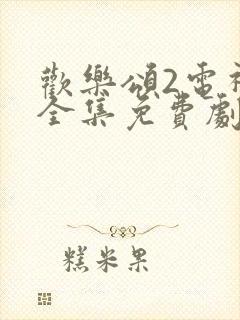 歡樂頌2電視
全集免費劇
糕米果